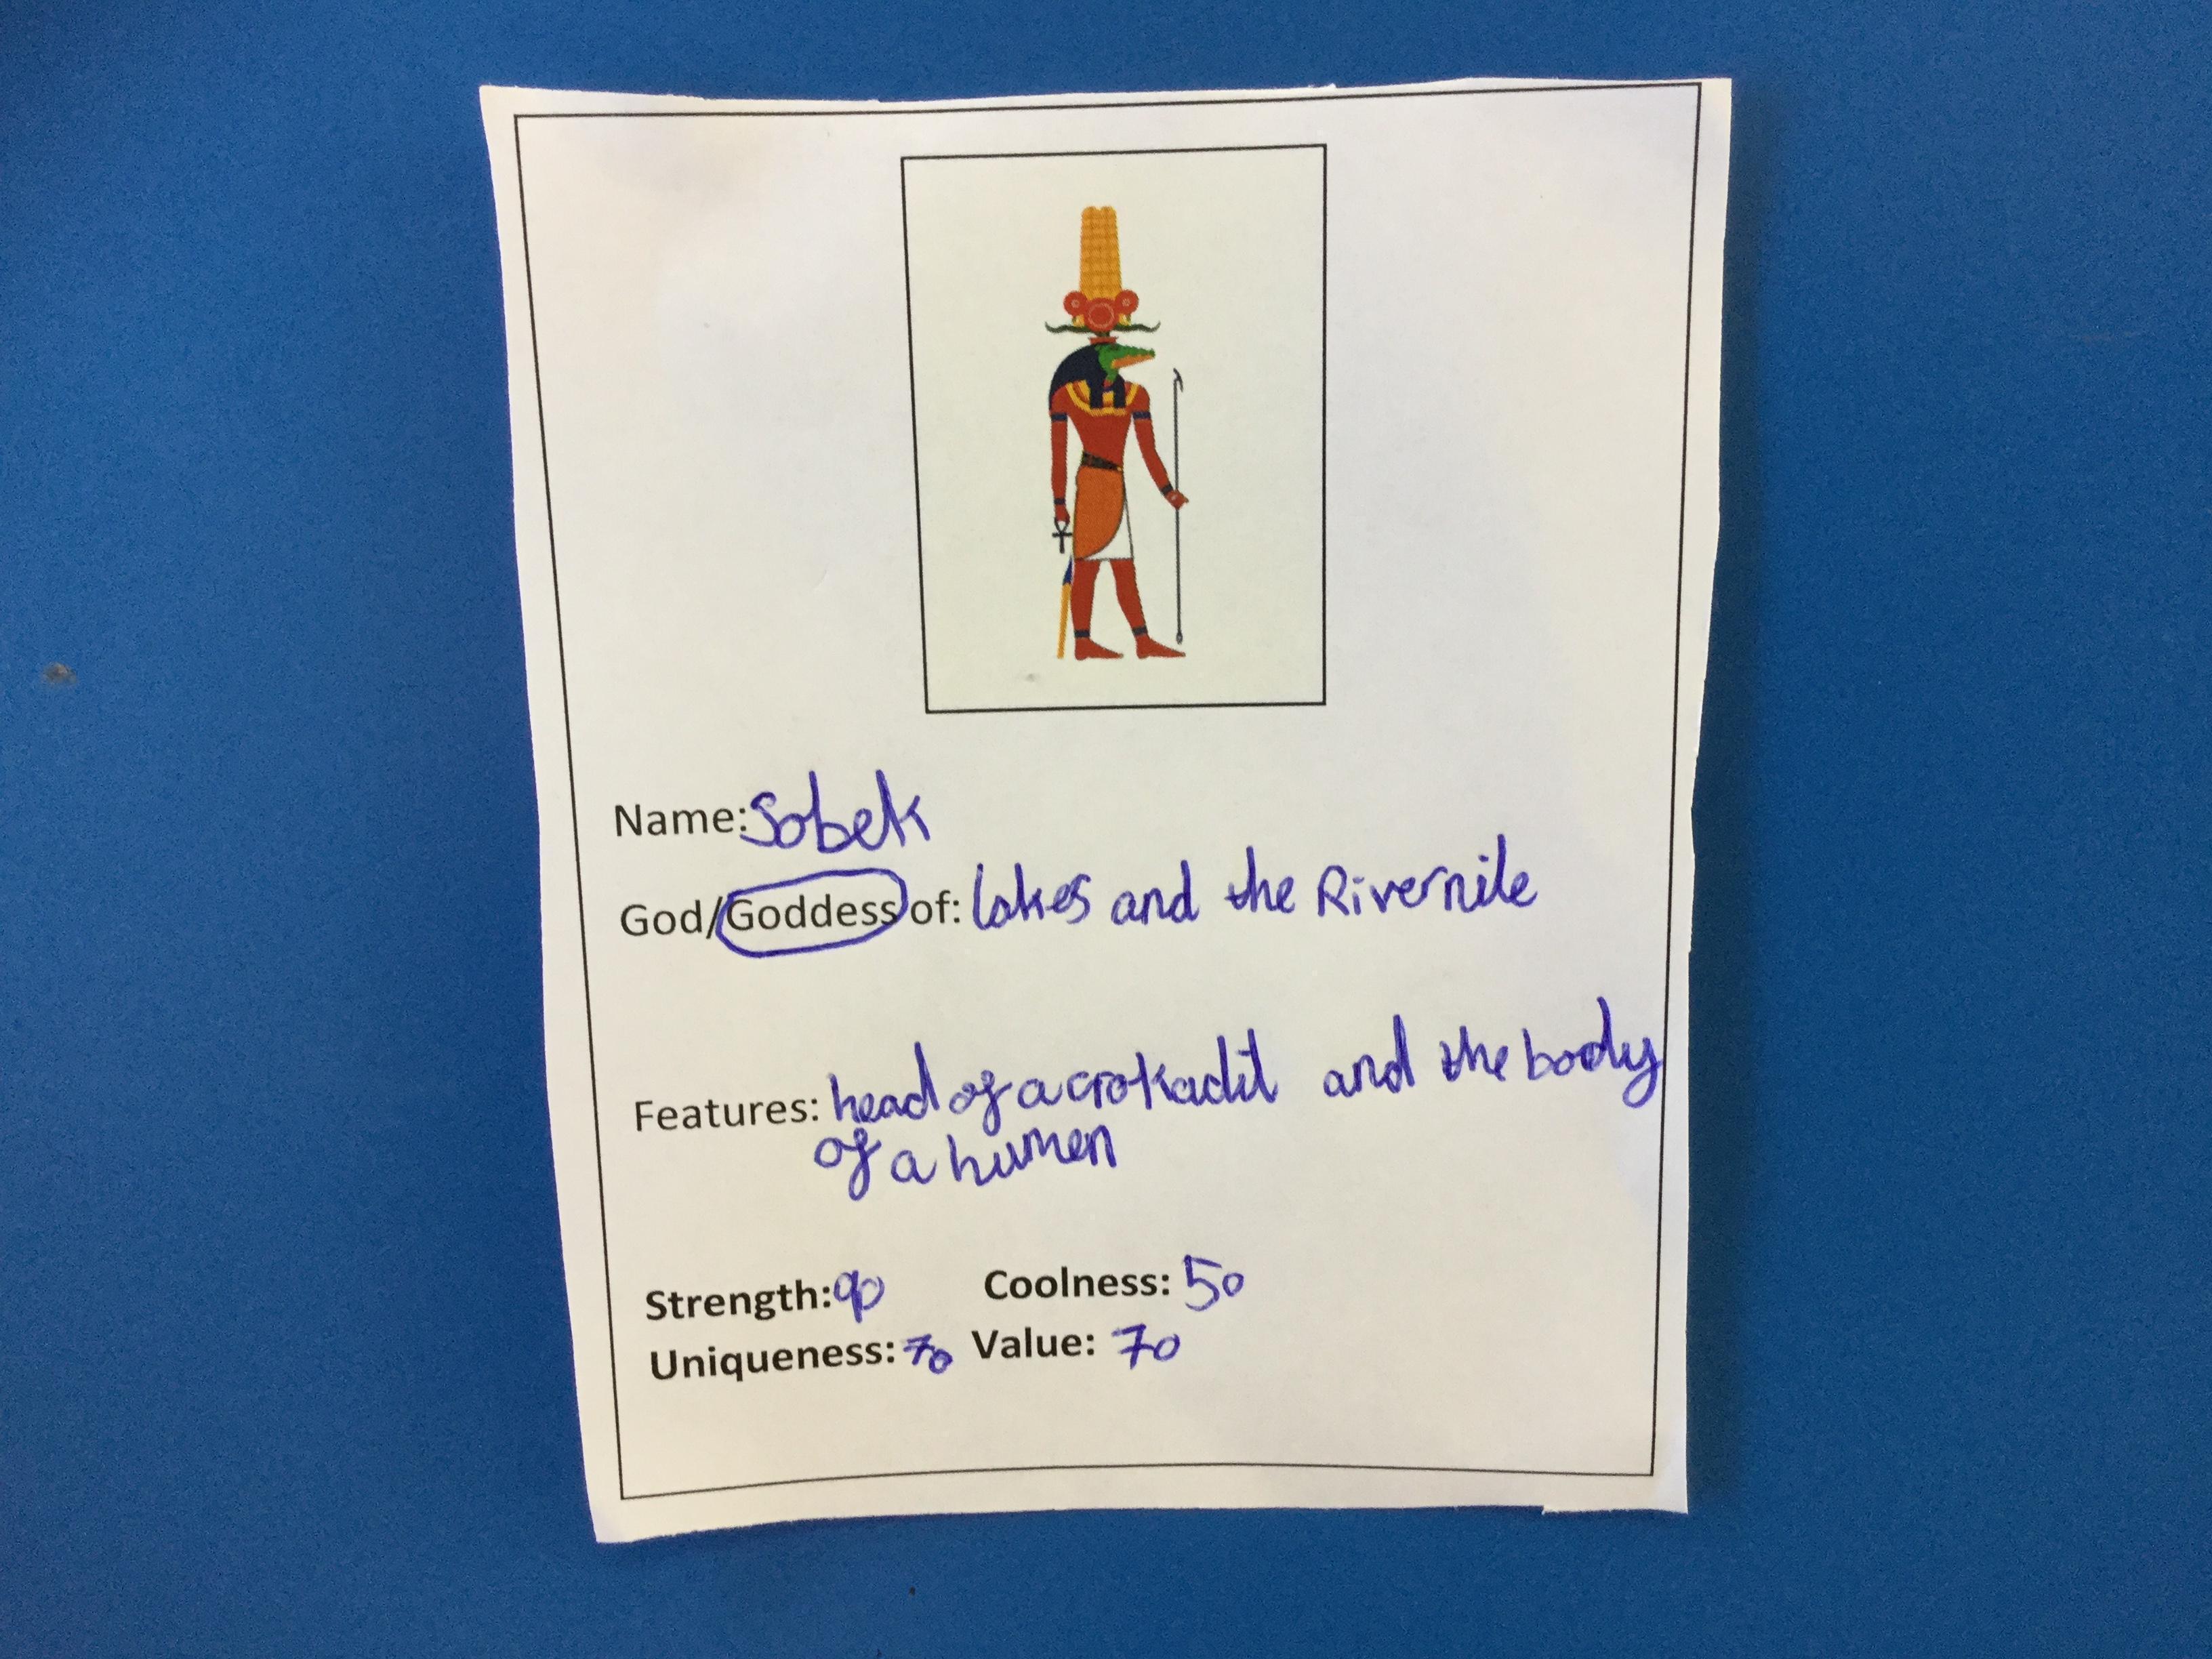 Name: Sobek
God/Goddess of: lakes and the Rivernile
Features: head of a crokadil and the body
of a humen
Strength: 90 Coolness: 50
Uniqueness: 70 Value: 70